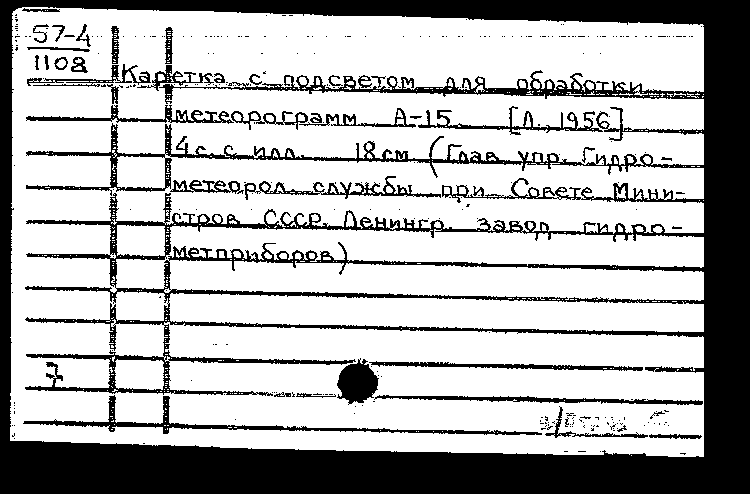 57-4
1108
Каретка с подсветом для обработки
метеорограмм А-15. [Л., 1956]
4 с. с илл. 18 см (Глав. упр. Гидро-
метеорол. службы при Совете Мини-
стров СССР. Ленингр. завод гидро-
метприборов)
7